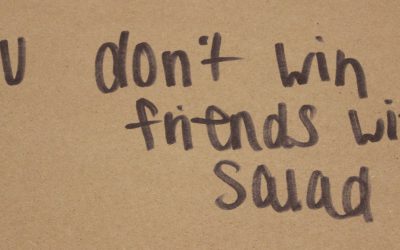 u don't win
friends wi
salad